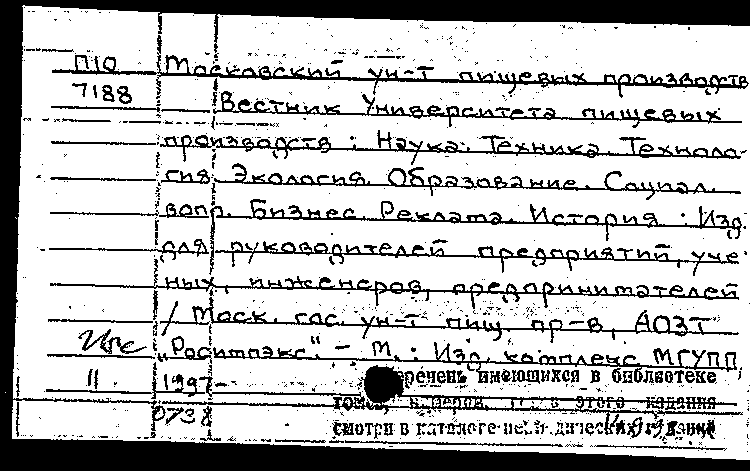 П10 Московский ун-т пищевых производств
7188 Вестник Университета пищевых
производств : Наука. Техника. Техноло-
гия. Экология. Образование. Социал.
вопр. Бизнес. Реклама. История : Изд.
для руководителей предприятий, уче-
ных, инженеров, предпринимателей
/ Моск. гос. ун-т пищ. пр-в, АОЗТ
„Роситпэкс". – М. : Изд. комплекс МГУПП,
11 1997-
речень имеющихся в библиотеке
томов, номеров, этого издания
0738 смотри в каталоге изданий